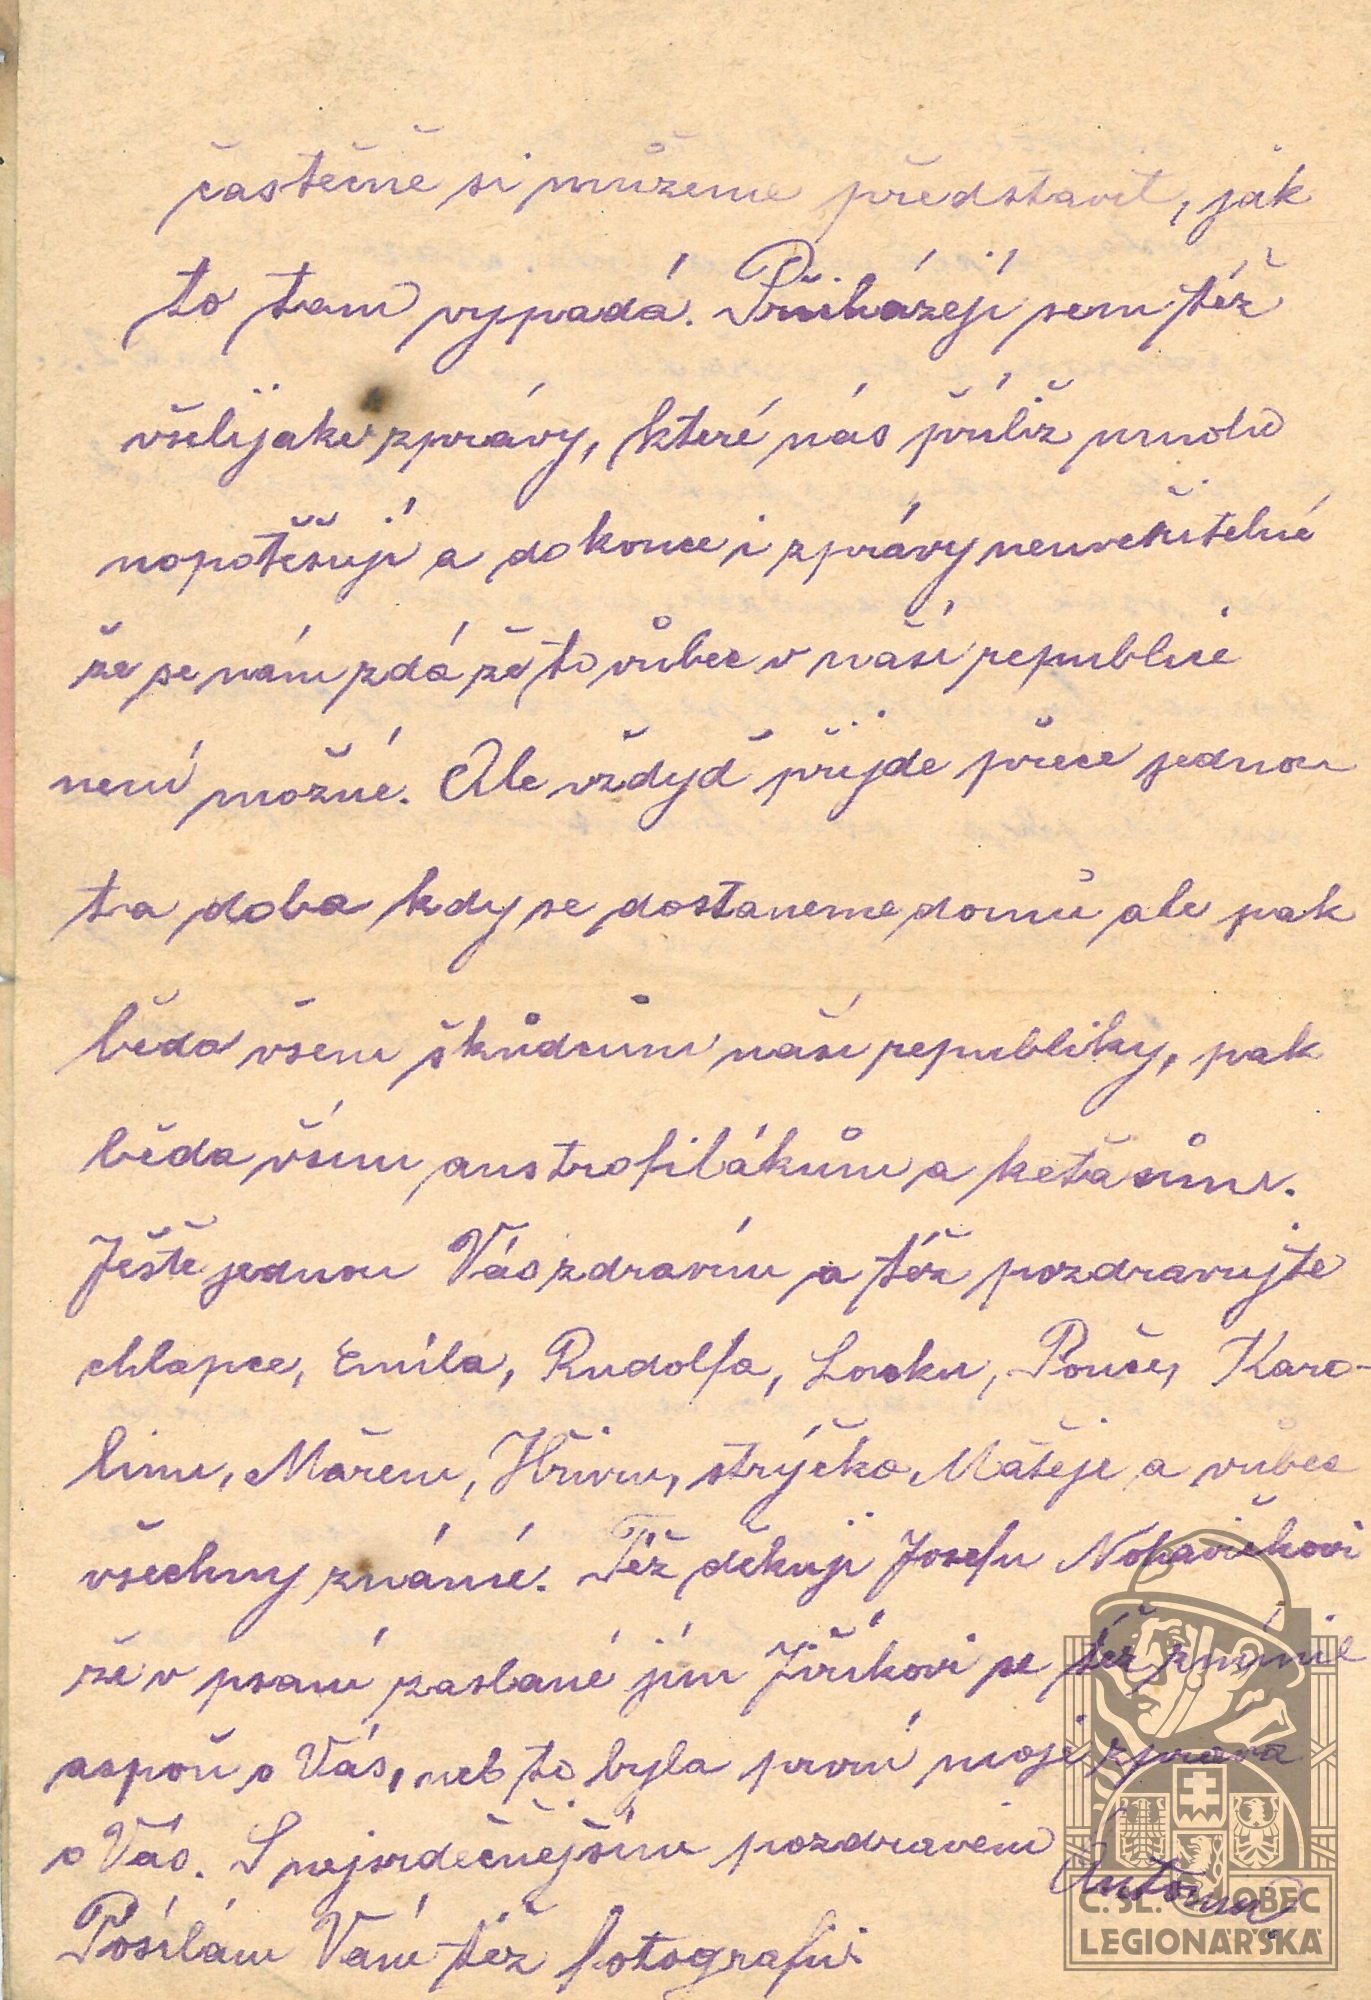 částečně si můžeme představit, jak
to tam vypadá. Přicházejí sem též
všelijaké zprávy, které nás příliž mnoho
nepotěšují a dokonce i zprávy neuvěřitelné
že se nám zdá že to vůbec v naší republice
není možné. Ale vždyď přijde přece jednou
ta doba kdy se dostaneme domů ale pak
běda všem škůdcům naší republiky, pak
běda všem austrofilákům a keťasům.
Ještě jednou Vás zdravím a též pozdravujte
chlapce, Emila, Rudolfa, Lojsku, Karo-
linu, Mařenu, strýčka Matěje a vůbec
všechny známé. Též děkuji Josefu Nohavičkovi
že v psaní zaslané jím Jiříkovi se též zmínil
aspoň o Vás, neb to byla první moje zpráva
o Vás. S nejsrdečnějším pozdravem
Antonín
Posílám Vám též fotografii.
Č. SL. OBEC
LEGIONÁŘSKÁ